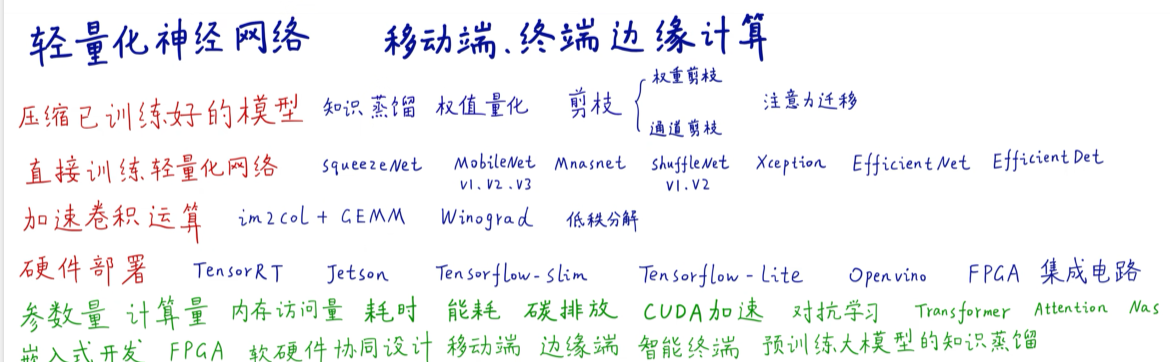 轻量化神经网络 移动端、终端边缘计算
压缩已训练好的模型 知识蒸馏 权值量化 剪枝 { 权重剪枝 通道剪枝 注意力迁移
直接训练轻量化网络 SqueezeNet MobileNet Mnasnet ShuffleNet Xception EfficientNet EfficientDet
V1.V2.V3 V1.V2
加速卷积运算 im2col + GEMM Winograd 低秩分解
硬件部署 TensorRT Jetson Tensorflow-slim Tensorflow-Lite Openvino FPGA 集成电路
参数量 计算量 内存访问量 耗时 能耗 碳排放 CUDA加速 对抗学习 Transformer Attention Nas
嵌入式开发 FPGA 软硬件协同设计 移动端 边缘端 智能终端 预训练大模型的知识蒸馏